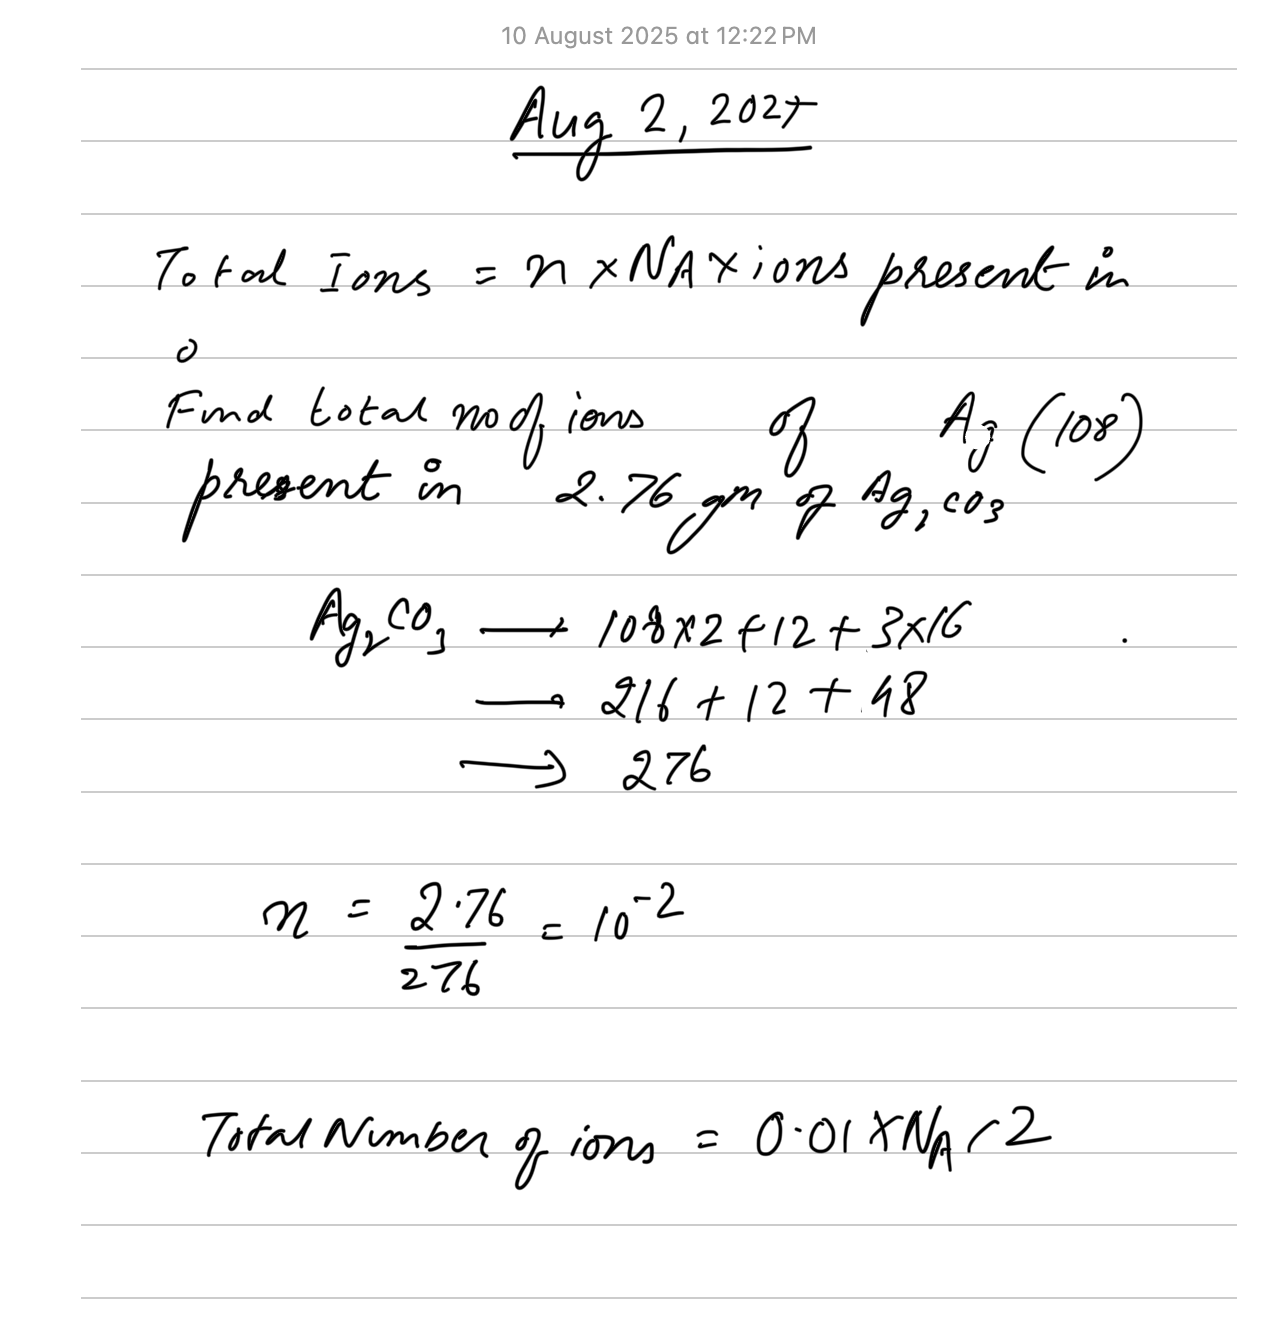 10 August 2025 at 12:22 PM
Aug 2, 2025
Total Ions = n × NA × ions present in
Find total no of ions of Ag (108)
present in 2.76 gm of Ag2CO3
Ag2CO3 → 108×2+12+3×16
→ 216 + 12 + 48
→ 276
n = 2.76 = 10⁻²
276
Total Number of ions = 0.01 × NA × 2